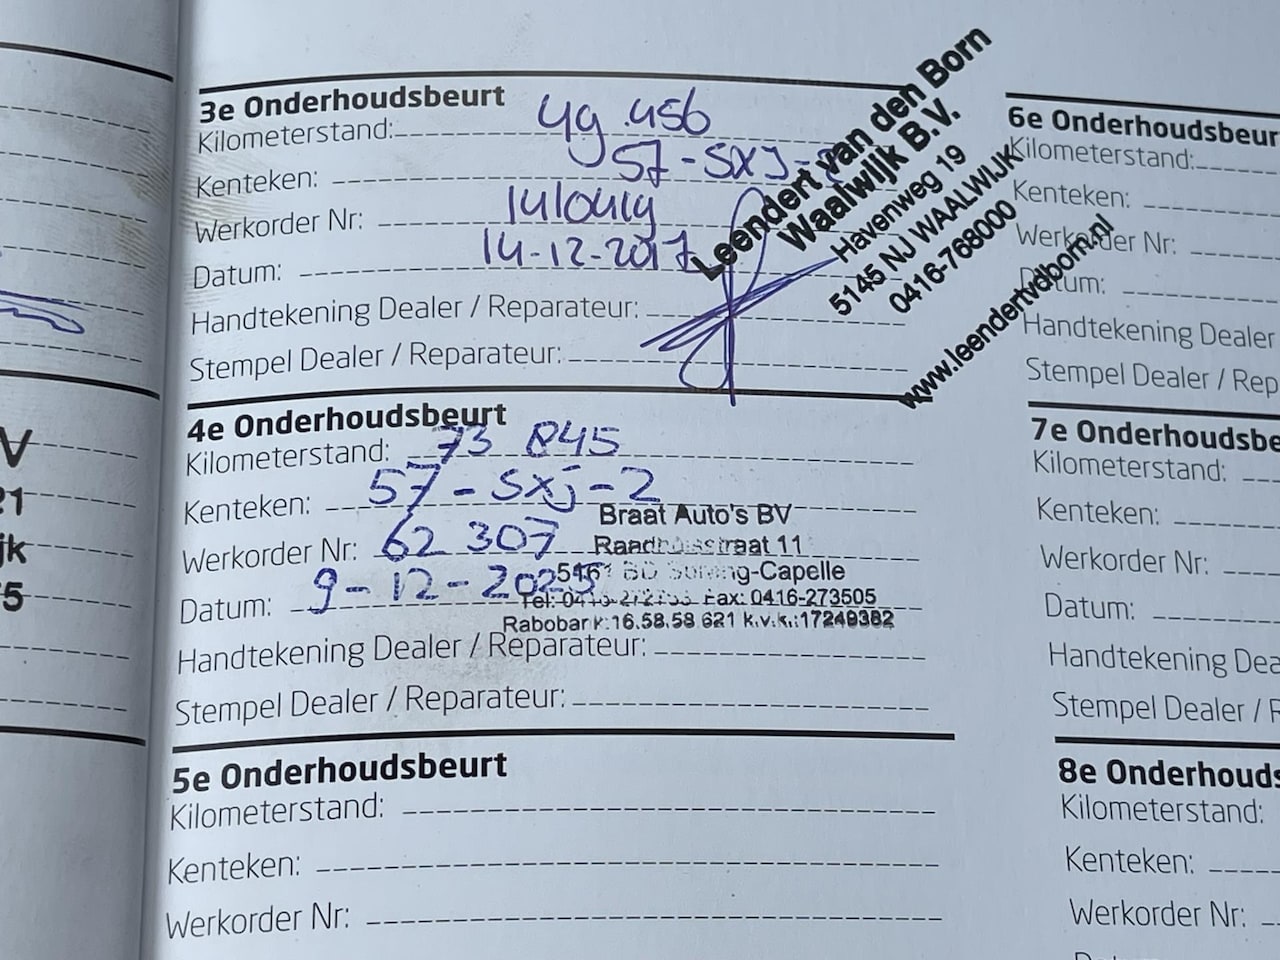 3e Onderhoudsbeurt
Kilometerstand: 49.456
Kenteken: 57-SXJ-
Werkorder Nr:
Datum: 14-12-2017
Handtekening Dealer / Reparateur:
Stempel Dealer / Reparateur:
Leendert van den Born
Waalwijk B.V.
Havenweg 19
5145 NJ WAALWIJK
0416-768000
www.leendertvdborn.nl
4e Onderhoudsbeurt
Kilometerstand: 73 845
Kenteken: 57-sxj-2
Werkorder Nr: 62 307
Datum: 9-12-2025
Handtekening Dealer / Reparateur:
Stempel Dealer / Reparateur:
Braat Auto's BV
11
-Capelle
Fax: 0416-273505
16.58.58 621 k.v.k.:17249382
5e Onderhoudsbeurt
Kilometerstand:
Kenteken:
Werkorder Nr:
6e Onderhoudsbeur
Kilometerstand:
Kenteken:
Werkorder Nr:
Datum:
Handtekening Dealer
Stempel Dealer / Rep
7e Onderhoudsbe
Kilometerstand:
Kenteken:
Werkorder Nr:
Datum:
Handtekening Dea
Stempel Dealer / R
8e Onderhouds
Kilometerstand:
Kenteken:
Werkorder Nr: